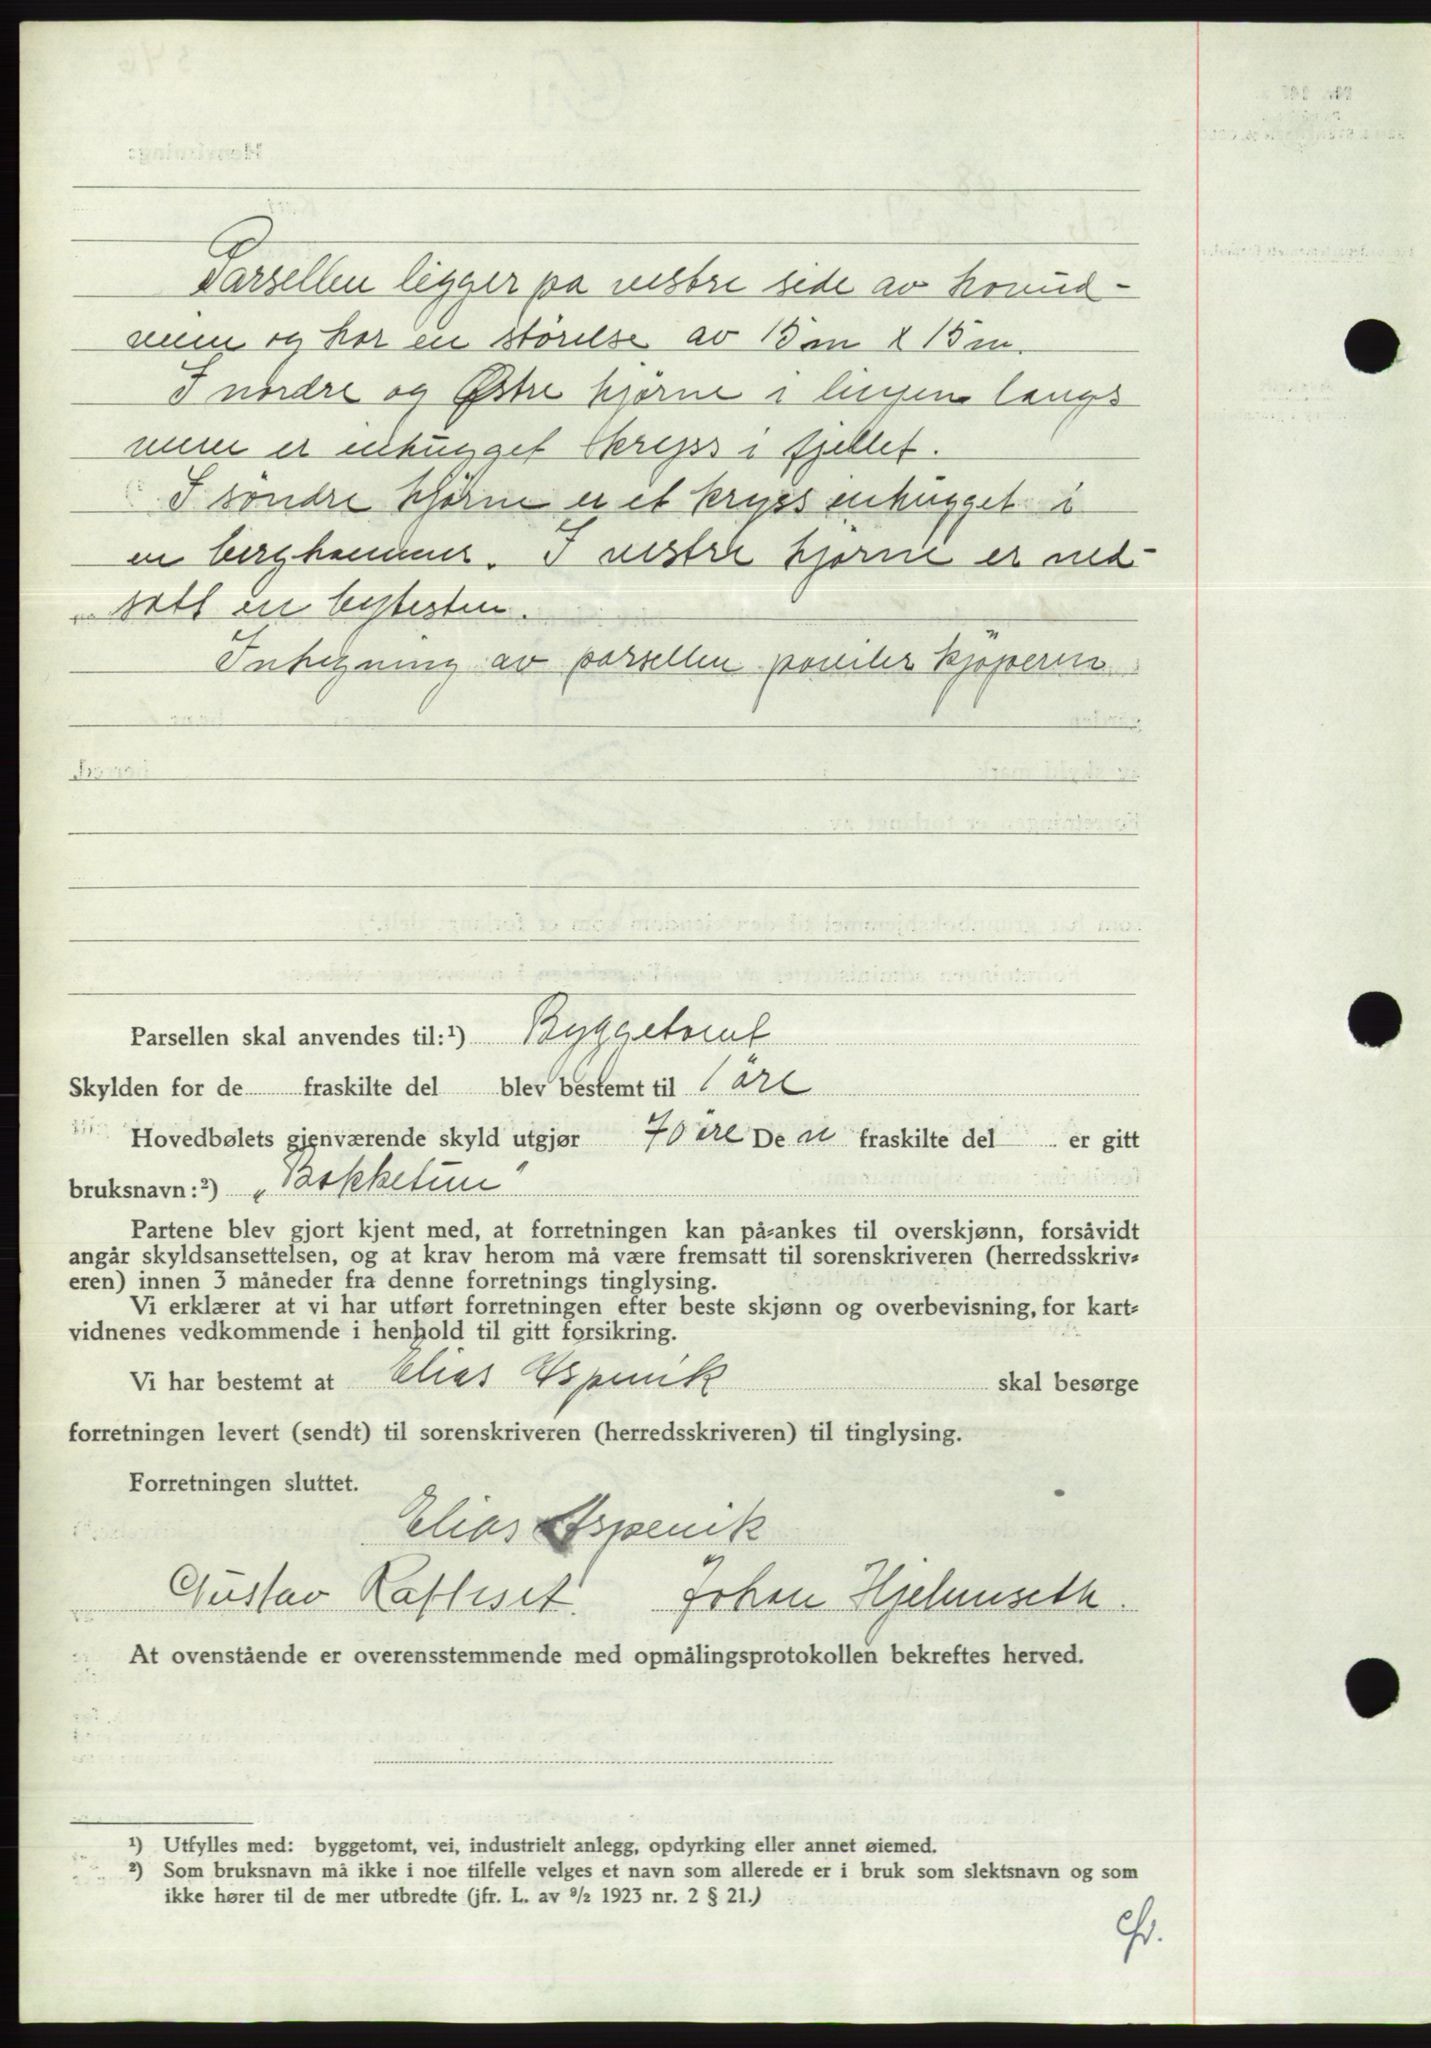 Parsellen ligger på vestre side av hovud-
veien og har en störelse av 15 m x 15 m.
I nordre og Østre hjørne i linjen langs
veien er inhugget kryss i fjellet.
I söndre hjørne er et kryss inhugget i
en berghammer. I vestre hjørne er ned-
satt en bytesten.
Inhegning av parsellen påviler kjöperen
Parsellen skal anvendes til:¹) Byggetomt
Skylden for de fraskilte del blev bestemt til 1 öre
Hovedbølets gjenværende skyld utgjør 70 öre De n fraskilte del er gitt
bruksnavn:²) „Bakketun"
Partene blev gjort kjent med, at forretningen kan på-ankes til overskjønn, forsåvidt
angår skyldsansettelsen, og at krav herom må være fremsatt til sorenskriveren (herredsskriv-
eren) innen 3 måneder fra denne forretnings tinglysing.
Vi erklærer at vi har utført forretningen efter beste skjønn og overbevisning, for kart-
vidnenes vedkommende i henhold til gitt forsikring.
Vi har bestemt at Elias Aspevik skal besørge
forretningen levert (sendt) til sorenskriveren (herredsskriveren) til tinglysing.
Forretningen sluttet.
Elias Aspevik
Gustav Rafteset. Johan Hjelmseth.
At ovenstående er overensstemmende med opmålingsprotokollen bekreftes herved.
¹) Utfylles med: byggetomt, vei, industrielt anlegg, opdyrking eller annet øiemed.
²) Som bruksnavn må ikke i noe tilfelle velges et navn som allerede er i bruk som slektsnavn og som
ikke hører til de mer utbredte (jfr. L. av 9/2 1923 nr. 2 § 21.)